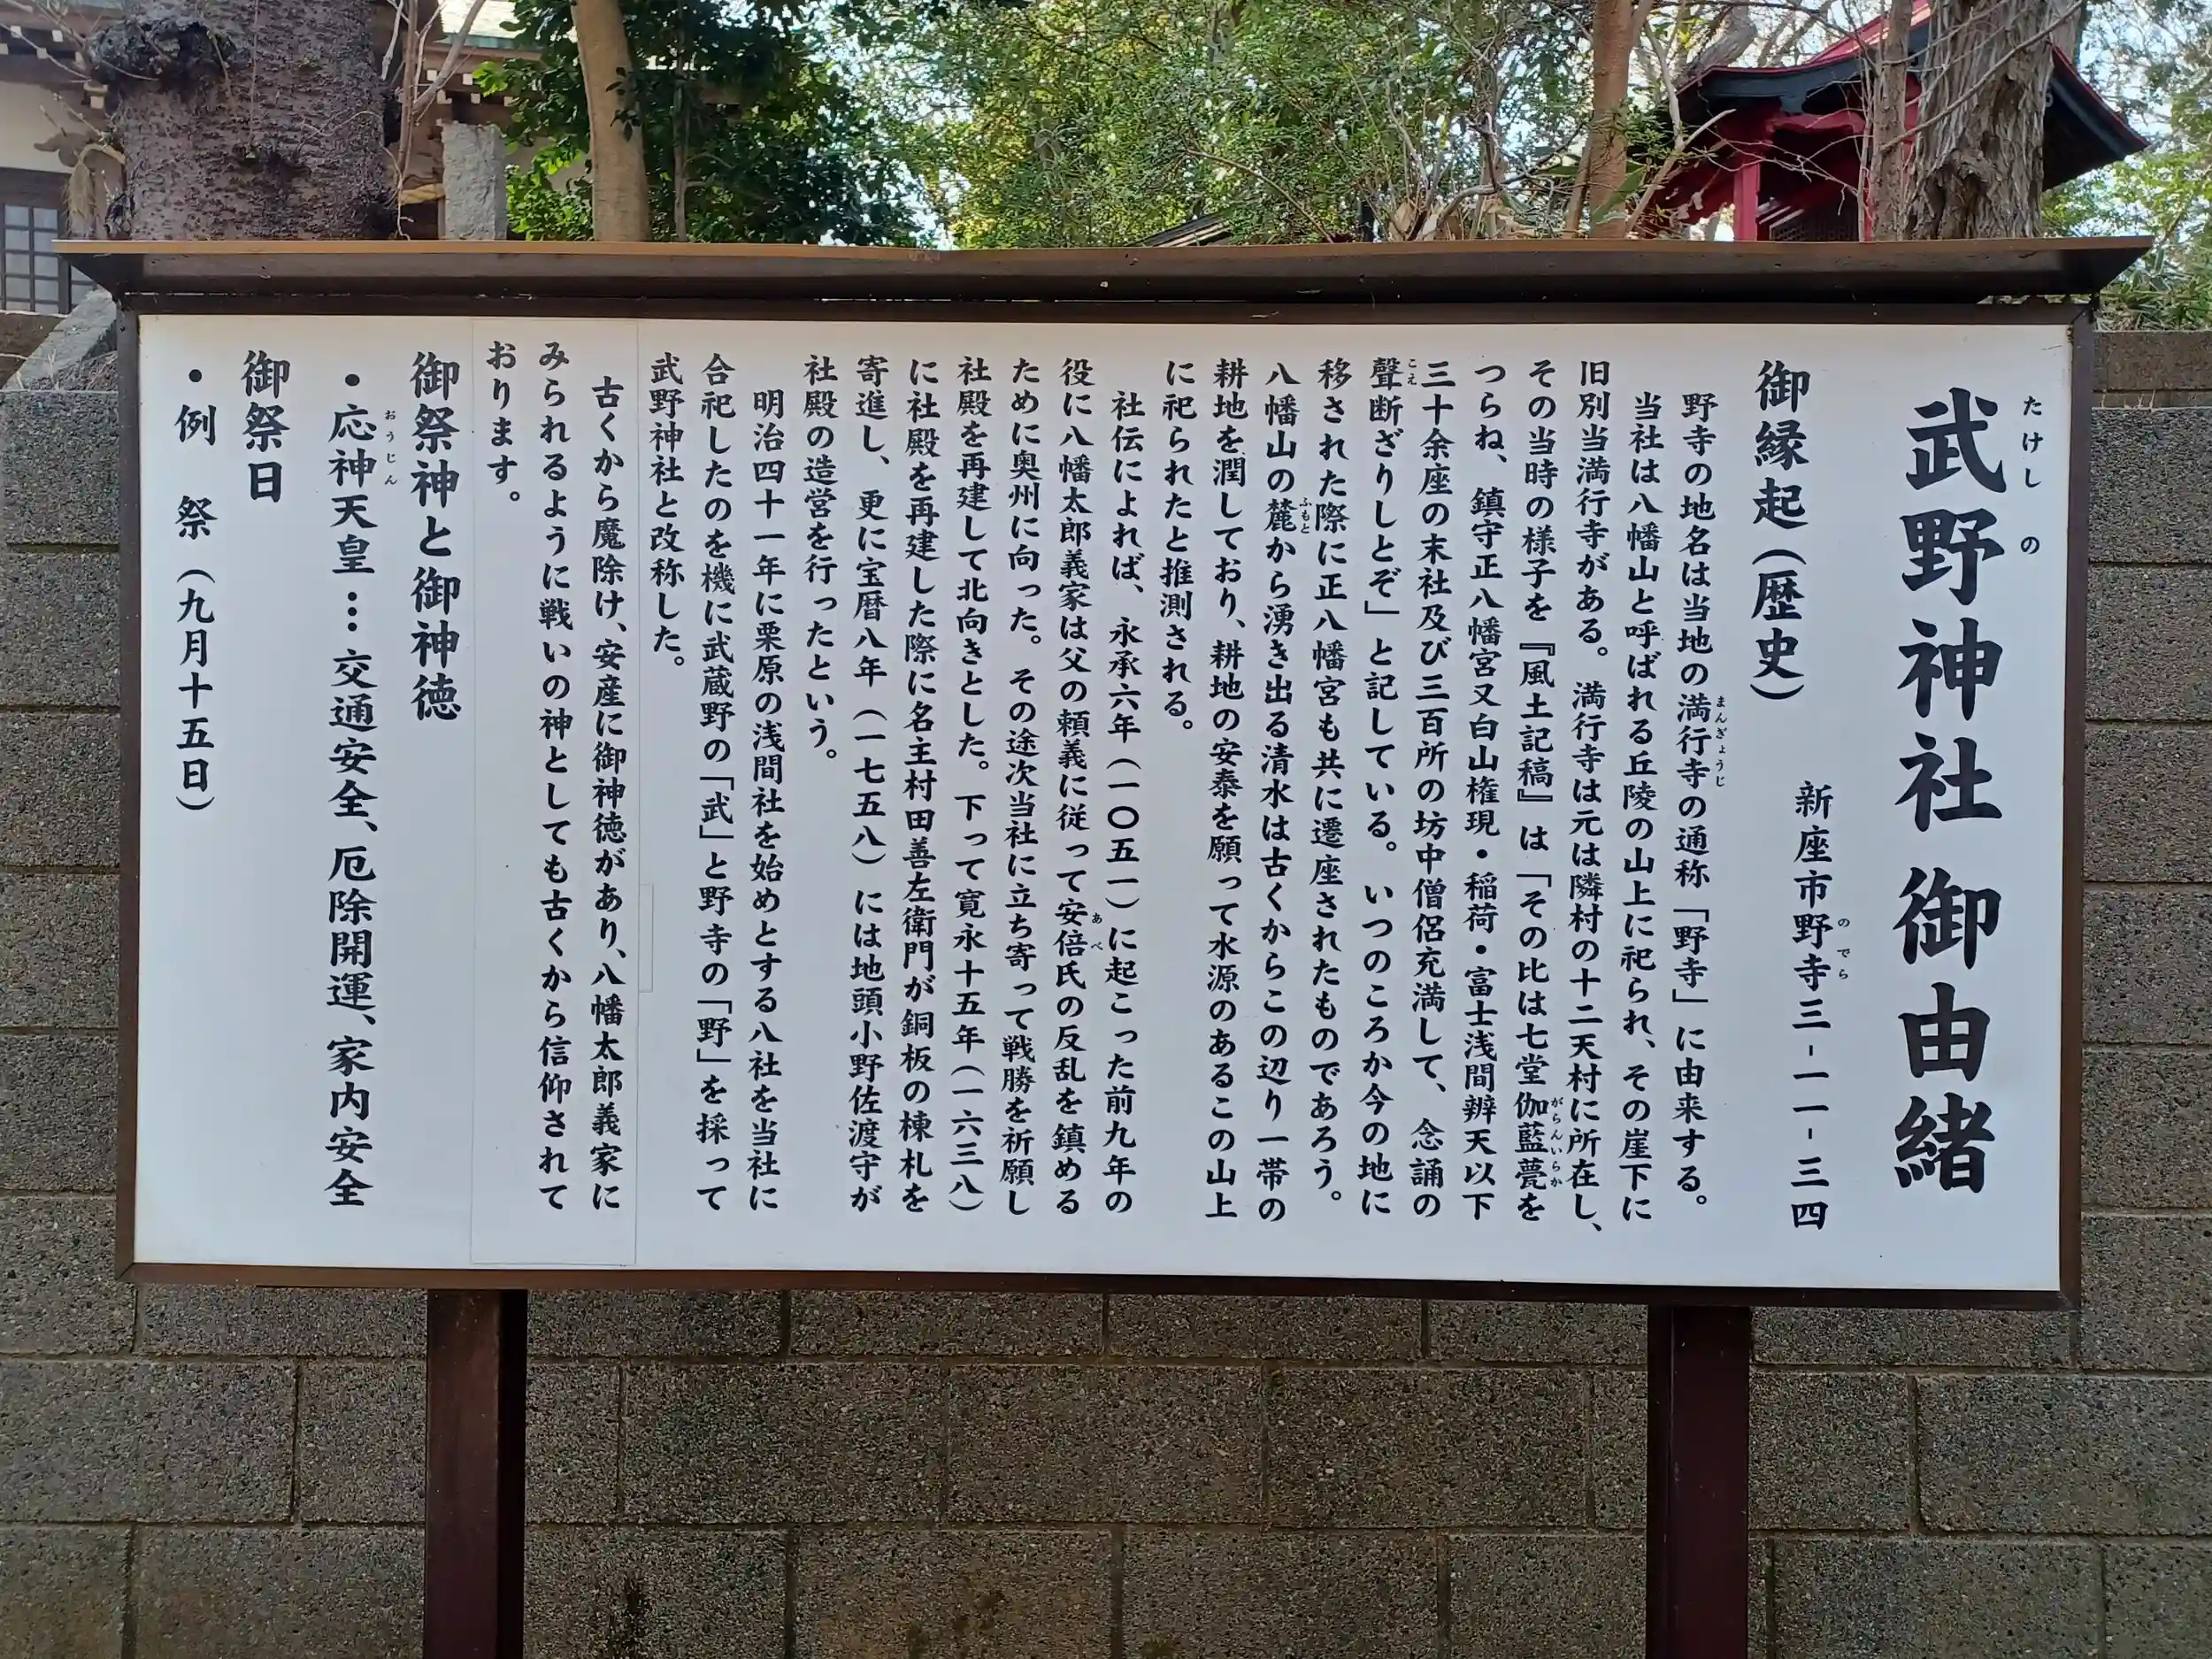 武野神社 御由緒
たけし の
新座市野寺三-一一-三四
のでら
御縁起（歴史）
野寺の地名は当地の満行寺の通称「野寺」に由来する。
まんぎょうじ
当社は八幡山と呼ばれる丘陵の山上に祀られ、その崖下に
旧別当満行寺がある。満行寺は元は隣村の十二天村に所在し、
その当時の様子を『風土記稿』は「その比は七堂伽藍甍を
がらんいらか
つらね、鎮守正八幡宮又白山権現・稲荷・富士浅間辨天以下
三十余座の末社及び三百所の坊中僧侶充満して、念誦の
聲断ざりしとぞ」と記している。いつのころか今の地に
こえ
移された際に正八幡宮も共に遷座されたものであろう。
八幡山の麓から湧き出る清水は古くからこの辺り一帯の
ふもと
耕地を潤しており、耕地の安泰を願って水源のあるこの山上
に祀られたと推測される。
社伝によれば、永承六年（一〇五一）に起こった前九年の
役に八幡太郎義家は父の頼義に従って安倍氏の反乱を鎮める
あべ
ために奥州に向った。その途次当社に立ち寄って戦勝を祈願し
社殿を再建して北向きとした。下って寛永十五年（一六三八）
に社殿を再建した際に名主村田善左衛門が銅板の棟札を
寄進し、更に宝暦八年（一七五八）には地頭小野佐渡守が
社殿の造営を行ったという。
明治四十一年に栗原の浅間社を始めとする八社を当社に
合祀したのを機に武蔵野の「武」と野寺の「野」を採って
武野神社と改称した。
古くから魔除け、安産に御神徳があり、八幡太郎義家に
みられるように戦いの神としても古くから信仰されて
おります。
御祭神と御神徳
・応神天皇…交通安全、厄除開運、家内安全
おうじん
御祭日
・例 祭（九月十五日）